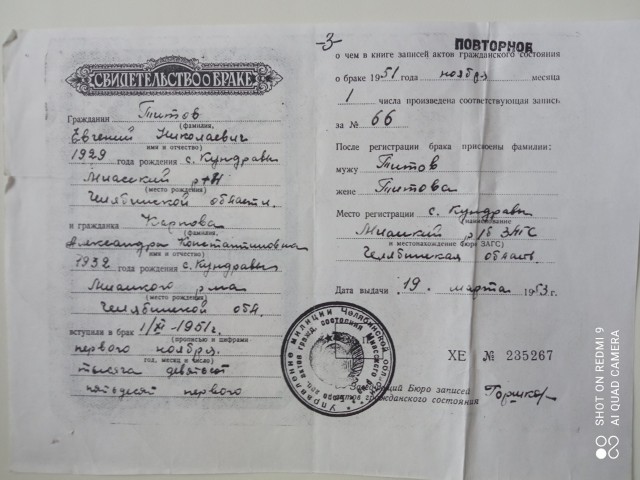 СВИДЕТЕЛЬСТВО О БРАКЕ
Гражданин Титов
(фамилия,
Евгений Николаевич
имя и отчество)
1929 года рождения с. Кундравы
Миасский р-н
(место рождения)
Челябинской области.
и гражданка Карпова
(фамилия,
Александра Константиновна
имя и отчество)
1932 года рождения с. Кундравы
Миасского р-на
(место рождения)
Челябинской обл.
вступили в брак 1/XI-1951г.
(прописью и цифрами
первого ноября
год, месяц и число)
тысяча девятьсот
пятьдесят первого
-3
ПОВТОРНОЕ
о чем в книге записей актов гражданского состояния
о браке 1951 года ноября месяца
1 числа произведена соответствующая запись
за № 66
После регистрации брака присвоены фамилии:
мужу Титов
жене Титова
Место регистрации с. Кундравы
наименование
Миасский р/б ЗАГС
и местонахождение бюро ЗАГС)
Челябинская область.
Дата выдачи 19. марта 1953 г.
Управление милиции Челябинской
актов гражд. состояния
ХЕ № 235267
Заведующий Бюро записей
актов гражданского состояния
SHOT ON REDMI 9
AI QUAD CAMERA